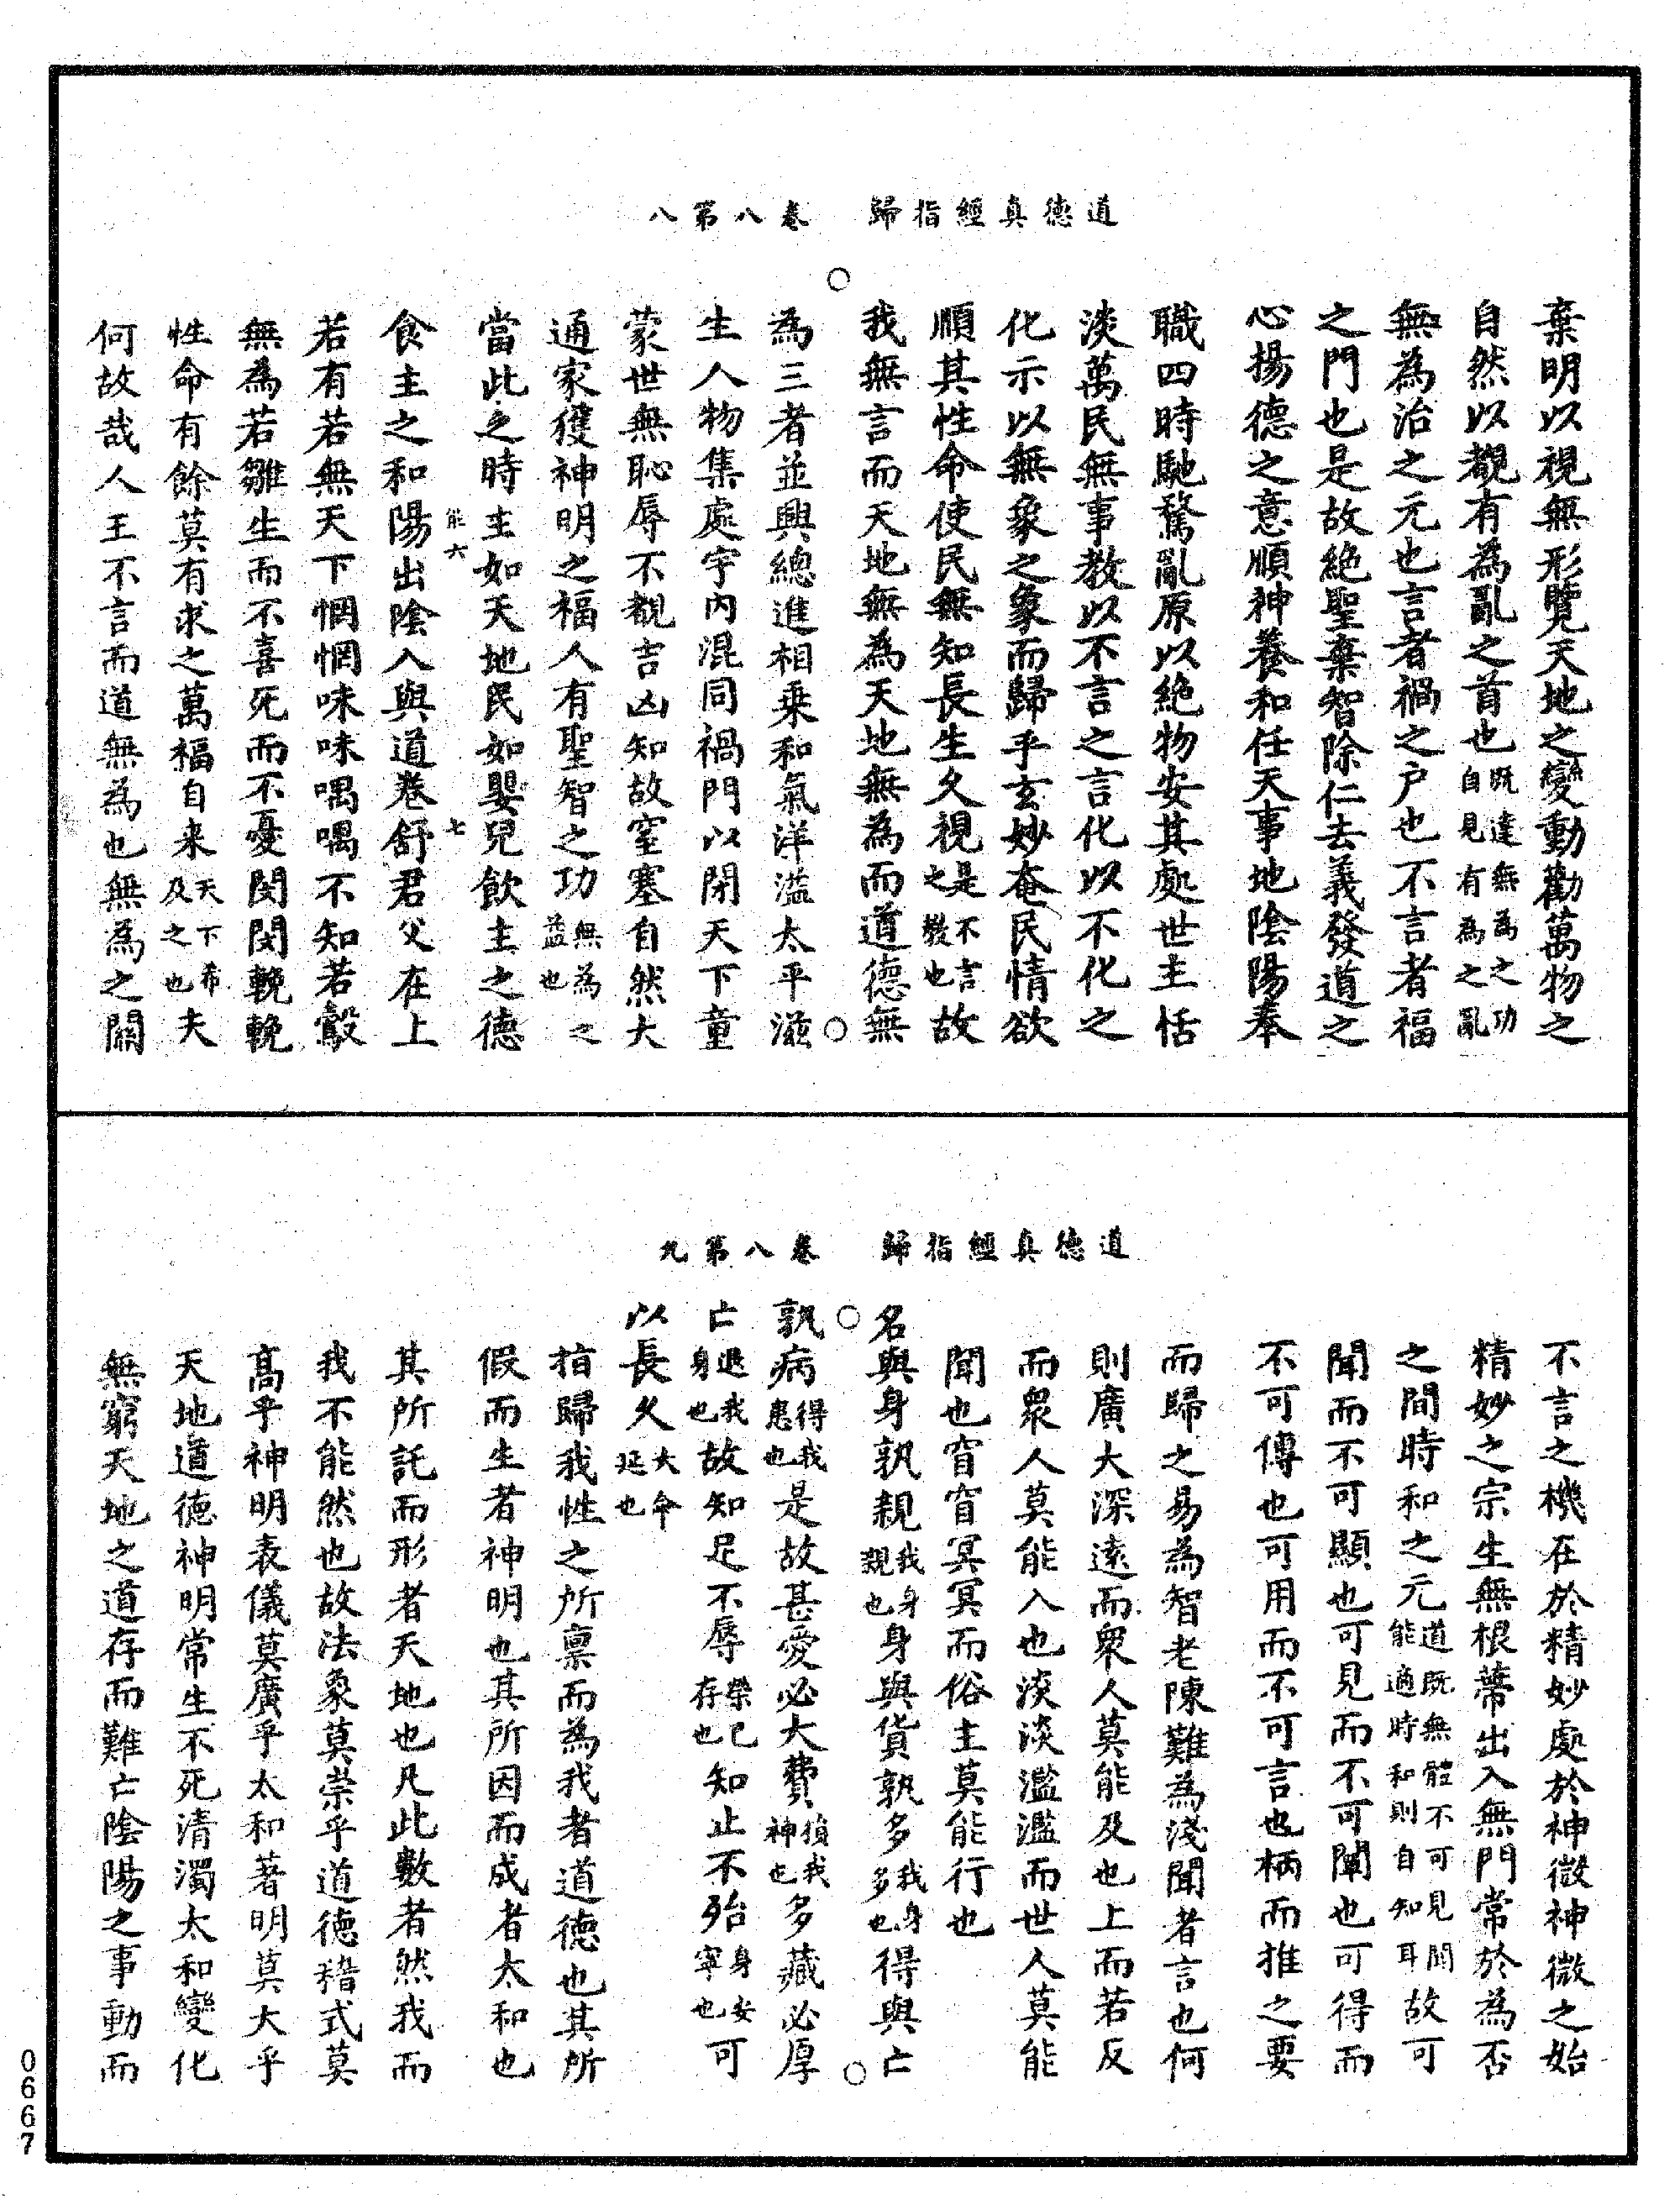 道德真經指歸　卷八第八
棄明以視無形覽天地之變動勸萬物之
自然以覩有為亂之首也既達無為之功自見有為之亂
無為治之元也言者禍之户也不言者福
之門也是故絶聖棄智除仁去義發道之
心揚德之意順神養和任天事地陰陽奉
職四時馳騖亂原以絶物安其處世主恬
淡萬民無事教以不言之言化以不化之
化示以無象之象而歸乎玄妙奄民情欲
順其性命使民無知長生久視是不言之教也故
我無言而天地無為天地無為而道德無
為三者並興總進相乗和氣洋溢太平滋
生人物集處宇内混同禍門以閉天下童
蒙世無恥辱不覩吉凶知故窒塞自然大
通家獲神明之福人有聖智之功無為之益也
當此之時主如天地民如嬰兒飲主之德
能六　七
食主之和陽出陰入與道卷舒君父在上
若有若無天下惘惘味味喁喁不知若鷇
無為若雛生而不喜死而不憂閔閔輓輓
性命有餘莫有求之萬福自来天下希及之也夫
何故哉人王不言而道無為也無為之關
道德真經指歸　卷八第九
不言之機在於精妙處於神微神微之始
精妙之宗生無根蔕出入無門常於為否
之間時和之元道既無體不可見聞能適時和則自知耳故可
聞而不可顯也可見而不可闡也可得而
不可傳也可用而不可言也柄而推之要
而歸之易為智老陳難為淺聞者言也何
則廣大深遠而衆人莫能及也上而若反
而衆人莫能入也淡淡濫濫而世人莫能
聞也窅窅冥冥而俗主莫能行也
名與身孰親我身親也身與貨孰多我身多也得與亡
孰病得我患也是故甚愛必大費損我神也多藏必厚
亡退我身也故知足不辱榮已存也知止不殆身安寧也可
以長久大命延也
指歸我性之所禀而為我者道德也其所
假而生者神明也其所因而成者太和也
其所託而形者天地也凡此數者然我而
我不能然也故法象莫崇乎道德稽式莫
高乎神明表儀莫廣乎太和著明莫大乎
天地道德神明常生不死清濁太和變化
無窮天地之道存而難亡陰陽之事動而
0667